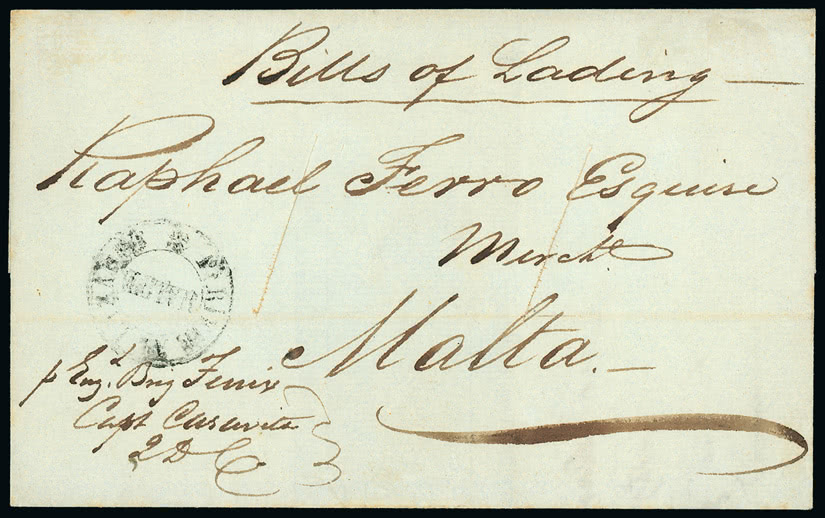 Bills of Lading
Raphael Ferro Esquire
Mercht.
Malta.
p Engl. Brig Fenix
Capt
2 D